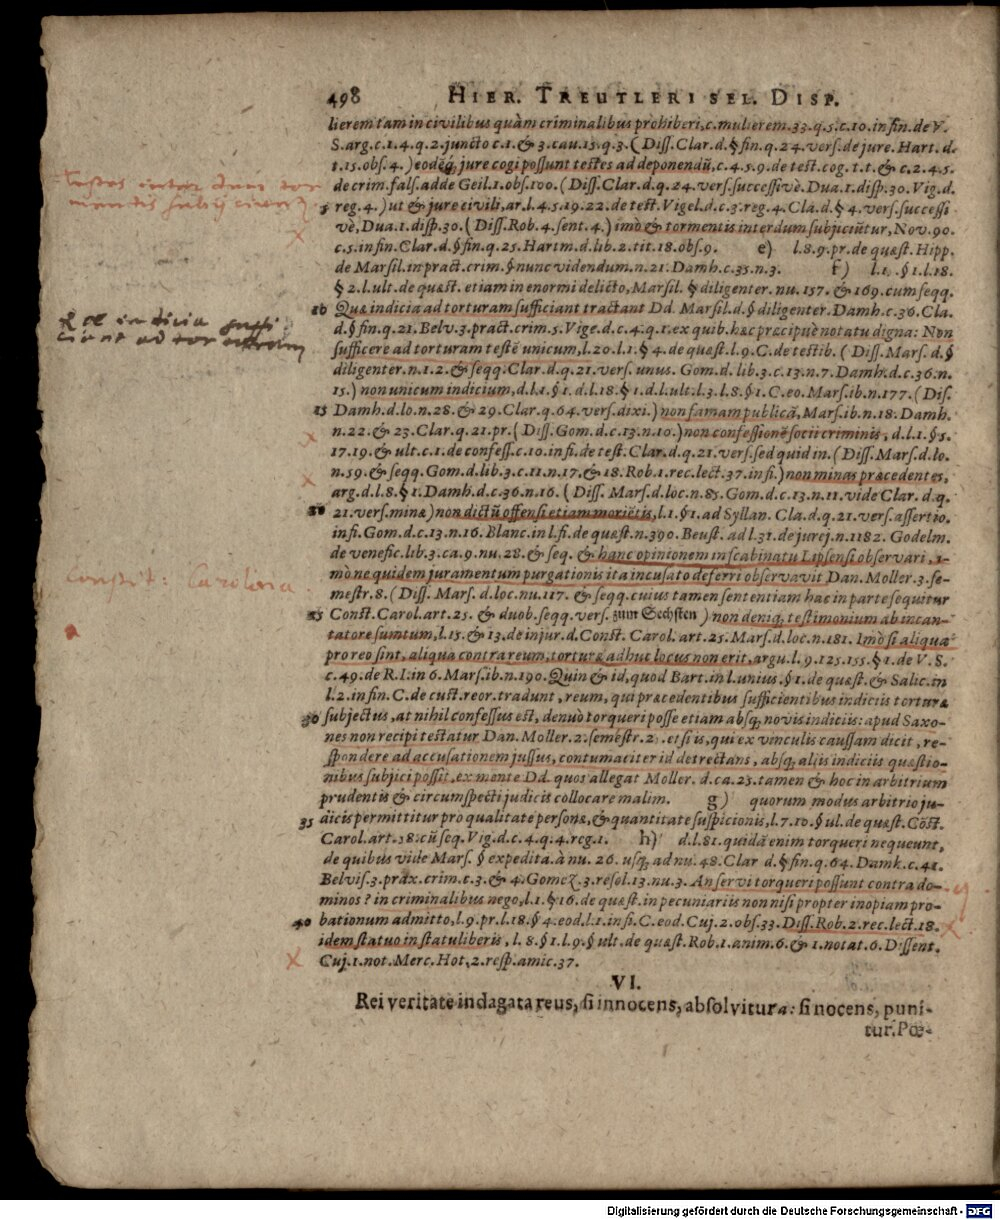 498 HIER. TREUTLERI SEL. DISP.
lierem tam in civilibus quàm criminalibus prohiberi, c. mulierem. 33. q. 5. c. 10. in fin. de V.
S. arg. c. 1. 4. q. 2. juncto c. 1. & 3. cau. 15. q. 3. (Diss. Clar. d. § fin. q. 24. vers. de jure. Hart. d.
t. 15. obs. 4.) eodéq; jure cogi possunt testes ad deponendũ, c. 4. 5. 9. de test. cog. 1. t. & c. 2. 4. 5.
de crim. fals. adde Geil. 1. obs. 100. (Diss. Clar. d. q. 24. vers. successivè. Dua. 1. disp. 30. Vig. d.
Testes interdum tor
mentis subijciuntur
5 reg. 4.) ut & jure civili, ar. l. 4. 5. 19. 22. de test. Vigel. d. c. 3. reg. 4. Cla. d. § 4. vers. successi
vè, Dua. 1. disp. 30. (Diss. Rob. 4. sent. 4.) imò & tormentis interdum subjiciũtur, Nov. 90.
c. 5. in fin. Clar. d. § fin. q. 25. Hartm. d. lib. 2. tit. 18. obs. 9. e) l. 8. 9. pr. de quæst. Hipp.
de Marsil. in pract. crim. § nunc videndum. n. 21. Damh. c. 35. n. 3. f) l. 1. § 1. l. 18.
§ 2. l. ult. de quæst. etiam in enormi delicto, Marsil. § diligenter. nu. 157. & 169. cum seqq.
10 Quæ indicia ad torturam sufficiant tractant Dd. Marsil. d. § diligenter. Damh. c. 36. Cla.
Quæ indicia suffi
ciant ad torturam
d. § fin. q. 21. Belv. 3. pract. crim. 5. Vige. d. c. 4. q. 1. ex quib. hæc præcipuè notatu digna: Non
sufficere ad torturam testẽ unicum, l. 20. l. 1. § 4. de quæst. l. 9. C. de testib. (Diss. Mars. d. §
diligenter. n. 1. 2. & seqq. Clar. d. q. 21. vers. unus. Gom. d. lib. 3. c. 13. n. 7. Damh. d. c. 36. n.
15.) non unicum indicium, d. l. 1. § 1. d. l. 18. § 1. d. l. ult. l. 3. l. 8. § 1. C. eo. Mars. ib. n. 177. (Dis.
15 Damh. d. lo. n. 28. & 29. Clar. q. 64. vers. dixi.) non famam publicã, Mars. ib. n. 18. Damh.
n. 22. & 23. Clar. q. 21. pr. (Diss. Gom. d. c. 13. n. 10.) non confessionẽ socii criminis, d. l. 1. § 5.
17. 19. & ult. c. 1. de confess. c. 10. in fi. de test. Clar. d. q. 21. vers. sed quid in. (Diss. Mars. d. lo.
n. 59. & seqq. Gom. d. lib. 3. c. 11. n. 17. & 18. Rob. 1. rec. lect. 37. in fi.) non minas præcedentes,
arg. d. l. 8. § 1. Damh. d. c. 36. n. 16. (Diss. Mars. d. loc. n. 85. Gom. d. c. 13. n. 11. vide Clar. d. q.
20 21. vers. minæ) non dictũ offensi etiam moriẽtis, l. 1. § 1. ad Syllan. Cla. d. q. 21. vers. assertio.
in fi. Gom. d. c. 13. n. 16. Blanc. in l. fi. de quæst. n. 390. Beust. ad l. 31. de jurej. n. 1182. Godelm.
de venefic. lib. 3. ca. 9. nu. 28. & seq. & hanc opinionem in scabinatu Lipsensi observari, i-
mò ne quidem juramentum purgationis ita incusato deferri observavit Dan. Moller. 3. se-
Constit: Carolina
mestr. 8. (Diss. Mars. d. loc. nu. 117. & seqq. cuius tamen sententiam hac in parte sequitur
25 Const. Carol. art. 25. & duob. seqq. vers. zum Sechsten) non deniq; testimonium ab incan-
tatore sumtum, l. 15. & 13. de injur. d. Const. Carol. art. 25. Mars. d. loc. n. 181. Imò si aliqua
pro reo sint, aliqua contra reum, torturæ adhuc locus non erit, argu. l. 9. 125. 155. § 1. de V. S.
c. 49. de R. I. in 6. Mars. ib. n. 190. Quin & id, quod Bart. in l. unius. § 1. de quæst. & Salic. in
l. 2. in fin. C. de cust. reor. tradunt, reum, qui præcedentibus sufficientibus indiciis torturæ
30 subjectus, at nihil confessus est, denuò torqueri posse etiam absq; novis indiciis: apud Saxo-
nes non recipi testatur Dan. Moller. 2. semestr. 2. et si is, qui ex vinculis caussam dicit, re-
spondere ad accusationem jussus, contumaciter id detrectans, absq; aliis indiciis quæstio-
nibus subjici possit, ex mente Dd. quos allegat Moller. d. ca. 23. tamen & hoc in arbitrium
prudentis & circumspecti judicis collocare malim. g) quorum modus arbitrio ju-
35 dicis permittitur pro qualitate personæ, & quantitate suspicionis, l. 7. 10. § ul. de quæst. Cõst.
Carol. art. 58. cũ seq. Vig. d. c. 4. q. 4. reg. 1. h) d. l. 81. quidã enim torqueri nequeunt,
de quibus vide Mars. § expedita. à nu. 26. usq; ad nu. 48. Clar d. § fin. q. 64. Damk. c. 41.
Belvis. 3. prax. crim. c. 3. & 4. Gomez. 3. resol. 13. nu. 3. An servi torqueri possunt contra do-
minos? in criminalibus nego, l. 1. § 16. de quæst. in pecuniariis non nisi propter inopiam pro-
40 bationum admitto, l. 9. pr. l. 18. § 4. eod. l. 1. in fi. C. eod. Cuj. 2. obs. 33. Diss. Rob. 2. rec. lect. 18.
idem statuo in statuliberis, l. 8. § 1. l. 9. § ult. de quæst. Rob. 1. anim. 6. & 1. notat. 6. Dissent.
Cuj. 1. not. Merc. Hot. 2. resp. amic. 37.
VI.
Rei veritate indagata reus, si innocens, absolvitur a: si nocens, puni-
tur. Pœ-
Digitalisierung gefördert durch die Deutsche Forschungsgemeinschaft - DFG